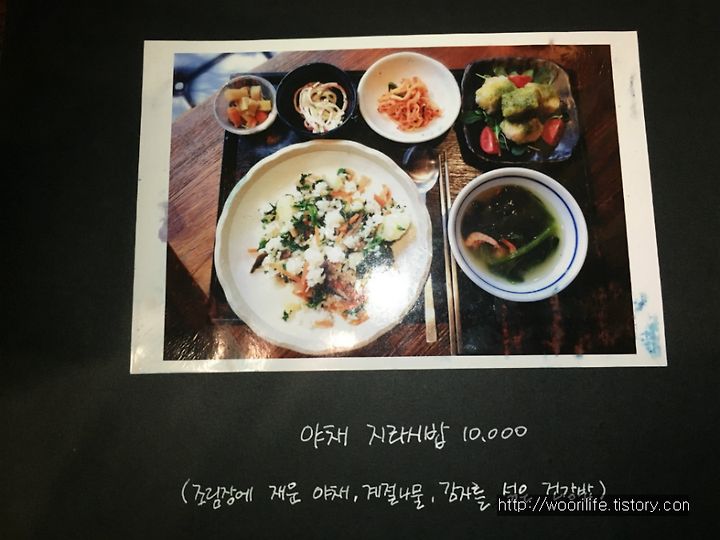 야채 지라시밥 10.000
(조림장에 재운 야채, 계절나물, 감자를 넣은 건강밥)
http://woorilife.tistory.com